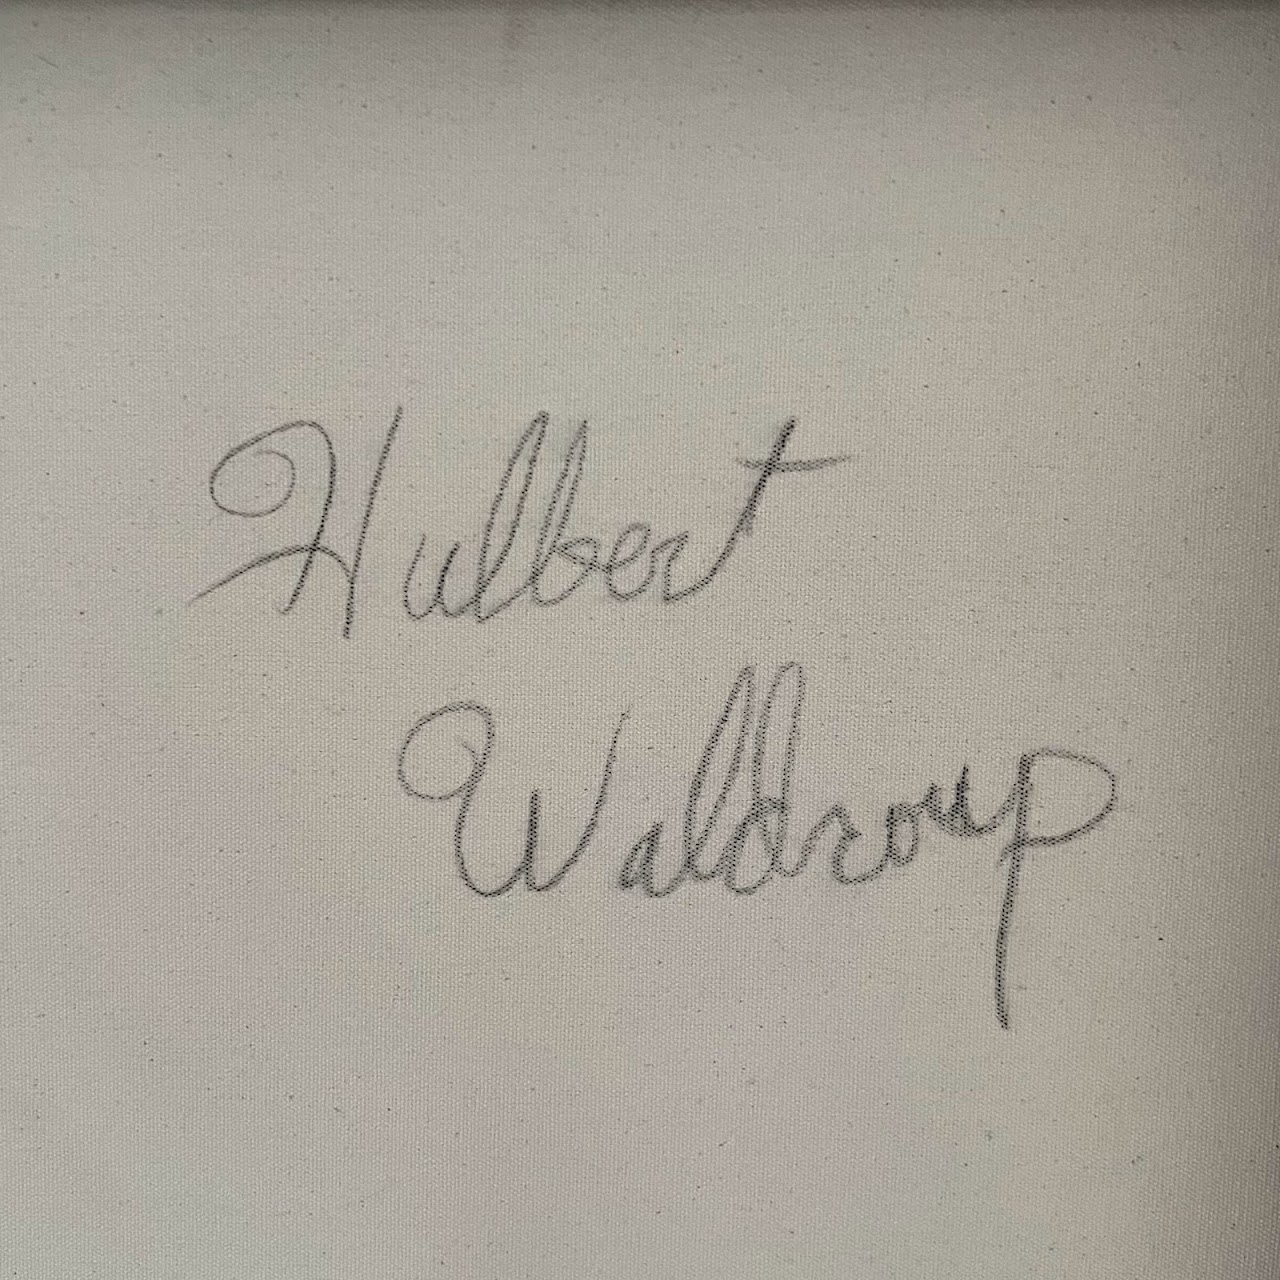 Hulbert
Waldroup